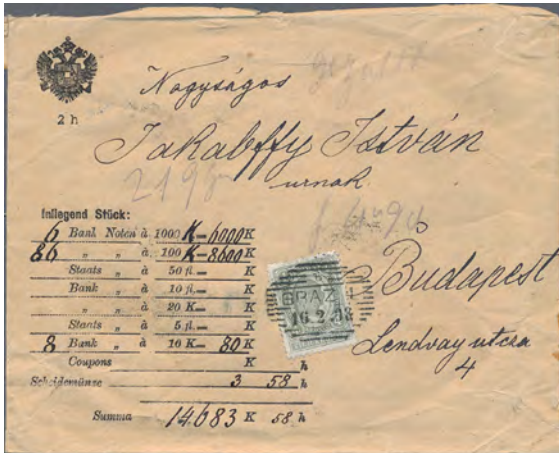 2 h
Nagyságos
Jakabffy István
urnak
Budapest
Lendvay utcza
4
GRAZ
16.2.03
Inliegend Stück:
6 Bank Noten à 1000 K= 6000 K
86 " " à 100 K= 8600 K
Staats " à 50 fl.=
Bank " à 10 fl.=
" " à 20 K=
Staats " à 5 fl.=
8 Bank " à 10 K= 80 K
Coupons K h
Scheidemünze 3 58 h
Summa 14683 K 58 h